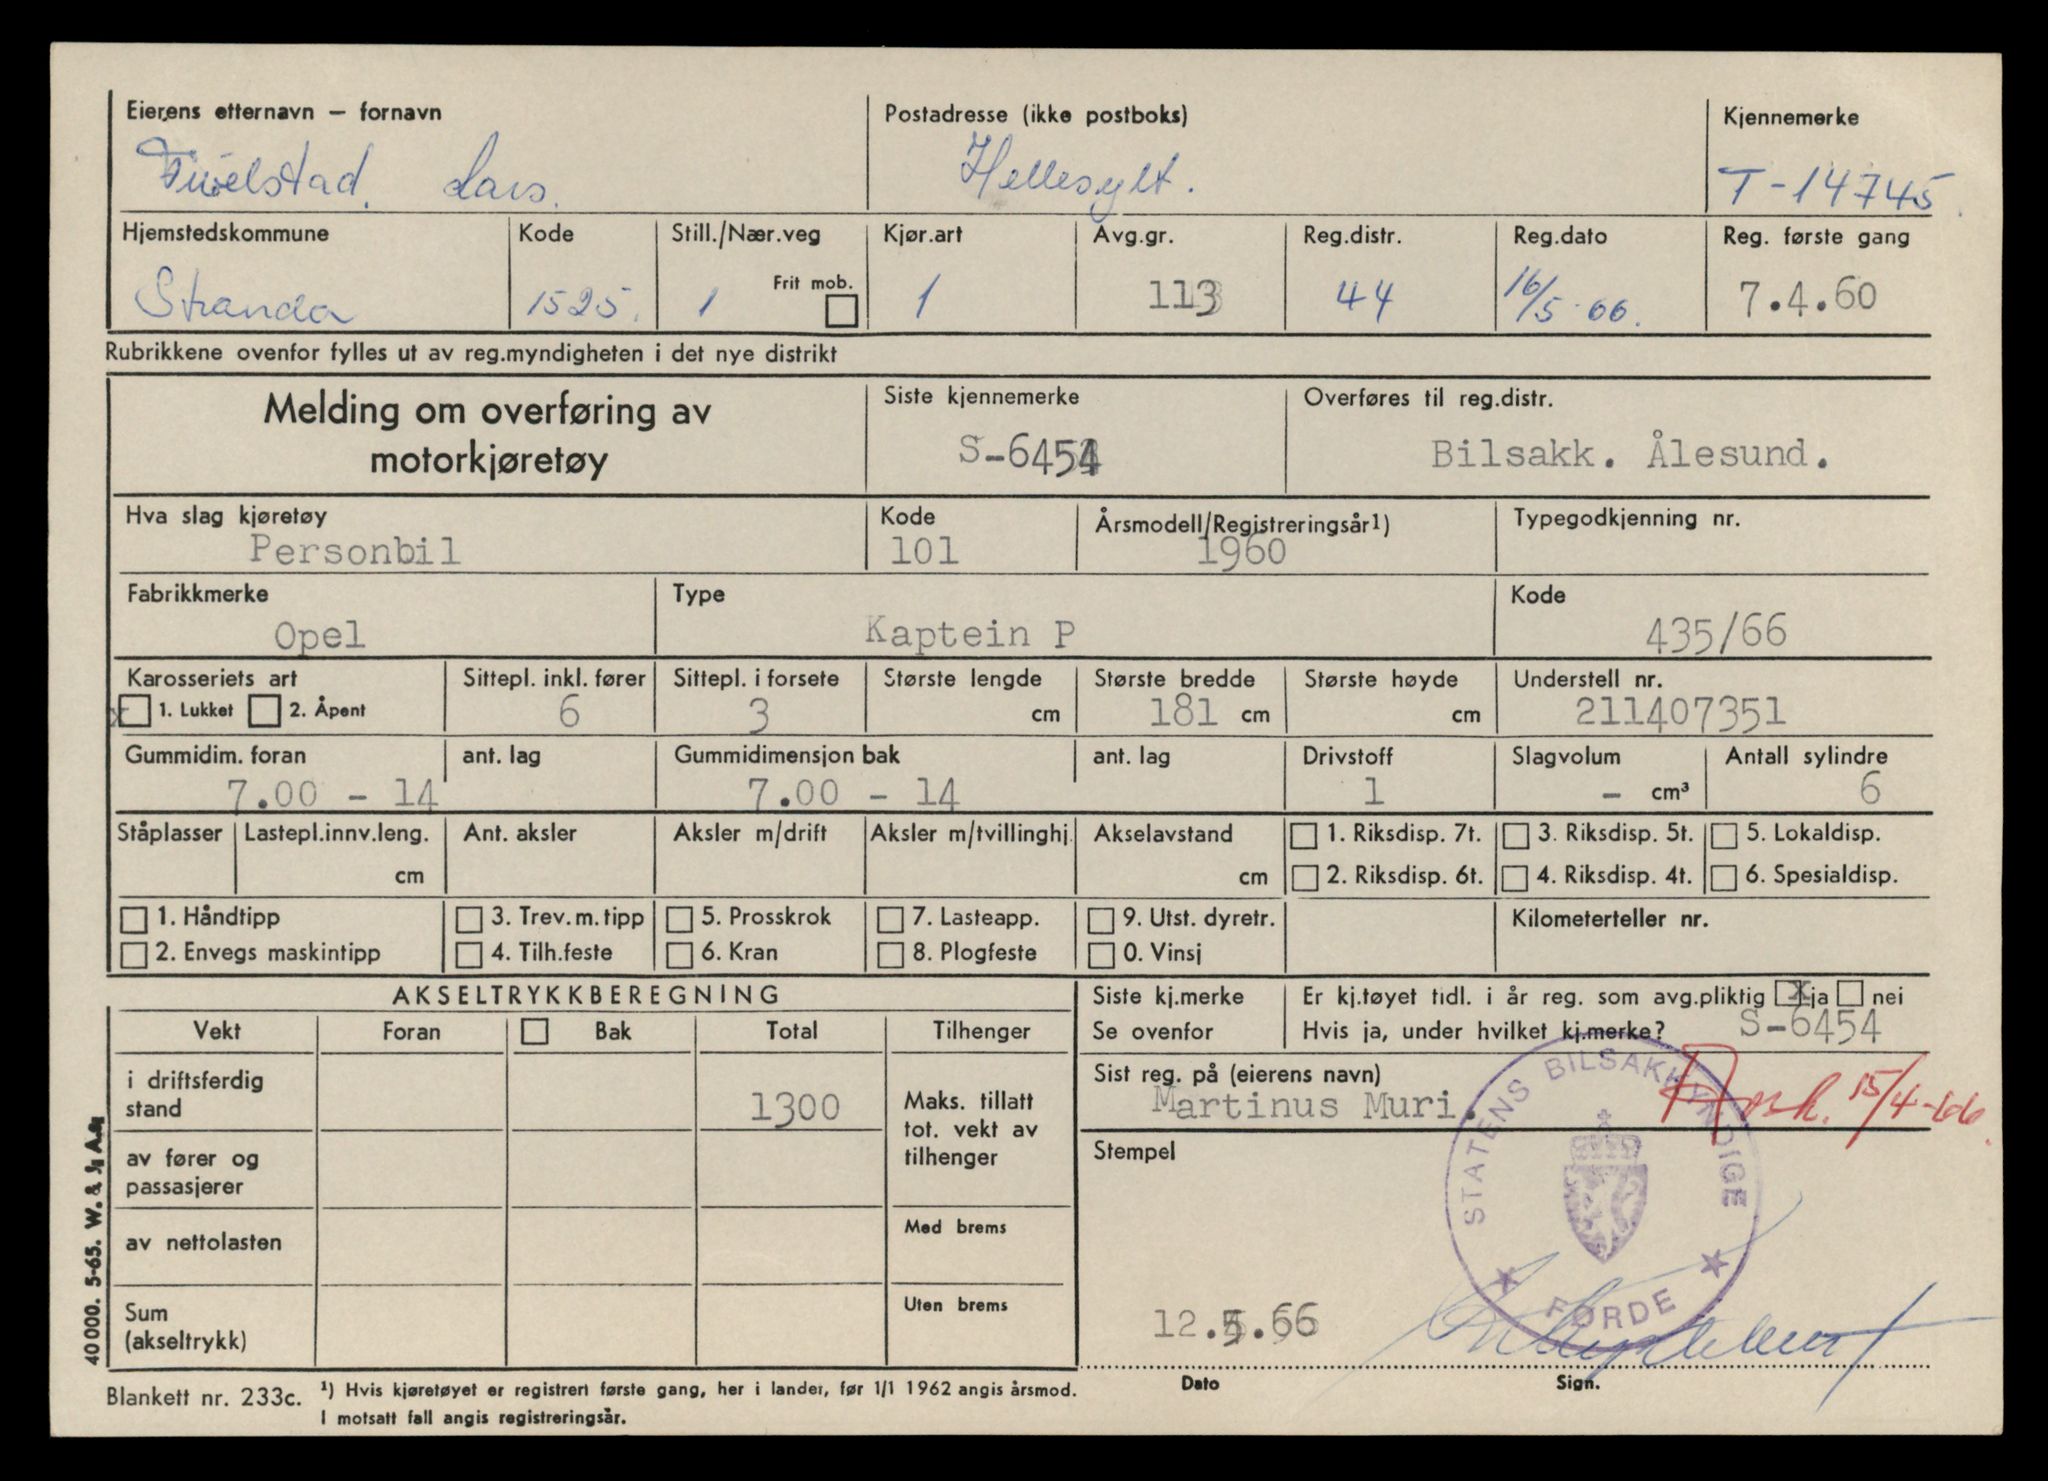 Eierens etternavn – fornavn
Postadresse (ikke postboks)
Kjennemerke
Lars.
Hellesylt.
T-14745.
Hjemstedskommune
Kode
Still./Nær.veg
Kjør.art
Avg.gr.
Reg.distr.
Reg.dato
Reg. første gang
Stranda
1525.
1
Frit mob.
1
113
44
16/5-66.
7.4.60
Rubrikkene ovenfor fylles ut av reg.myndigheten i det nye distrikt
Melding om overføring av
motorkjøretøy
Siste kjennemerke
S-6454
Overføres til reg.distr.
Bilsakk. Ålesund.
Hva slag kjøretøy
Personbil
Kode
101
Årsmodell/Registreringsår1)
1960
Typegodkjenning nr.
Fabrikkmerke
Opel
Type
Kaptein P
Kode
435/66
Karosseriets art
x 1. Lukket 2. Åpent
Sittepl. inkl. fører
6
Sittepl. i forsete
3
Største lengde
cm
Største bredde
181 cm
Største høyde
cm
Understell nr.
211407351
Gummidim. foran
7.00 - 14
ant. lag
Gummidimensjon bak
7.00 - 14
ant. lag
Drivstoff
1
Slagvolum
- cm³
Antall sylindre
6
Ståplasser
Lastepl.innv.leng.
cm
Ant. aksler
Aksler m/drift
Aksler m/tvillinghj.
Akselavstand
cm
1. Riksdisp. 7t.
2. Riksdisp. 6t.
3. Riksdisp. 5t.
4. Riksdisp. 4t.
5. Lokaldisp.
6. Spesialdisp.
1. Håndtipp
2. Envegs maskintipp
3. Trev. m. tipp
4. Tilh.feste
5. Prosskrok
6. Kran
7. Lasteapp.
8. Plogfeste
9. Utst. dyretr.
0. Vinsj
Kilometerteller nr.
AKSELTRYKKBEREGNING
Vekt
Foran
Bak
Total
Tilhenger
i driftsferdig
stand
1300
Maks. tillatt
tot. vekt av
tilhenger
av fører og
passasjerer
av nettolasten
Med brems
Sum
(akseltrykk)
Uten brems
Siste kj.merke
Se ovenfor
Er kj.tøyet tidl. i år reg. som avg.pliktig x ja nei
Hvis ja, under hvilket kj.merke? S-6454
Sist reg. på (eierens navn)
Martinus Muri.
15/4-66.
Stempel
STATENS BILSAKKYNDIGE
FØRDE
12.5.66
Dato
Sign.
40 000. 5-65. W. & J. A.s.
Blankett nr. 233c.
¹) Hvis kjøretøyet er registrert første gang, her i landet, før 1/1 1962 angis årsmod.
I motsatt fall angis registreringsår.